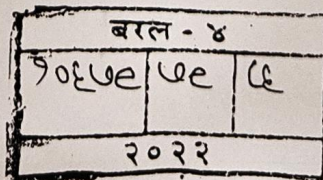 बरल - ४
१०६७९ ७९ ८६
२०२२